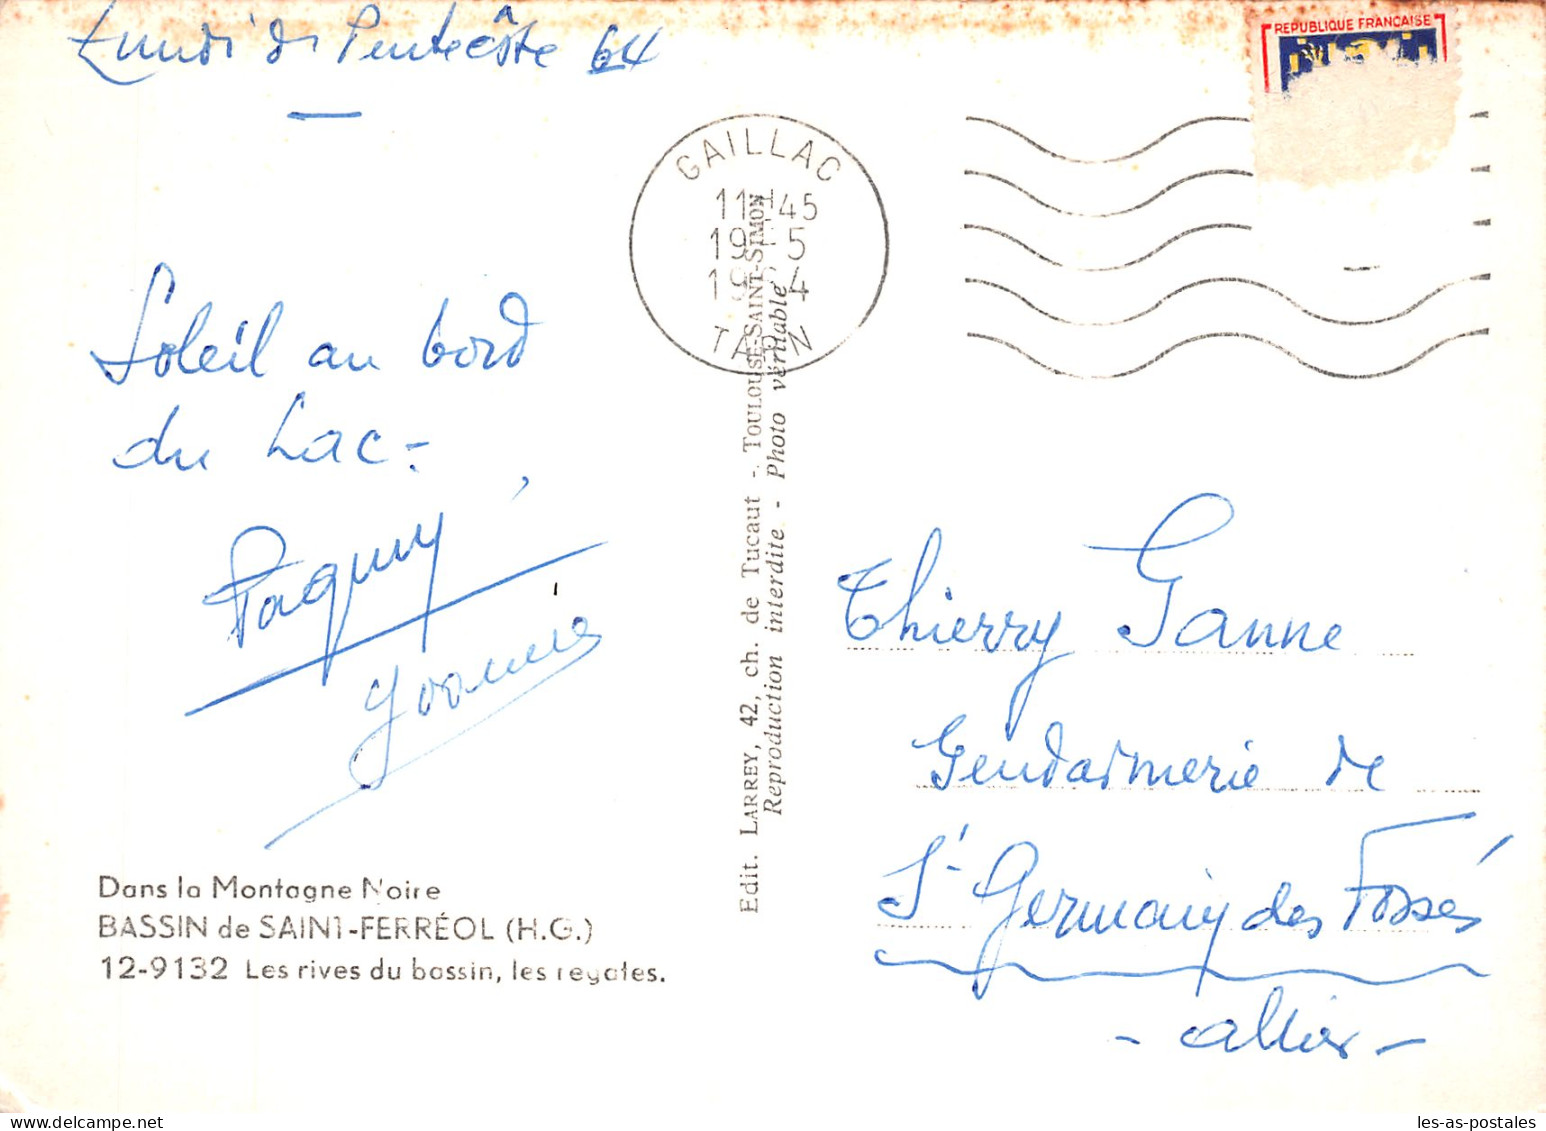 Lundi de Pentecôste 64
REPUBLIQUE FRANCAISE
GAILLAC
11H45
19-5
1964
TARN
Soleil au bord
du Lac -
Paquy
Yvonnie
Dans la Montagne Noire
BASSIN de SAINT-FERRÉOL (H.G.)
12-9132 Les rives du bassin, les regates.
Edit. LARREY, 42, ch. de Tucaut - TOULOUSE-SAINT-SIMON
Reproduction interdite - Photo véritable
Thierry Ganne
Gendarmerie de
St Germain des Fossés
- Allier -
les-as-postales